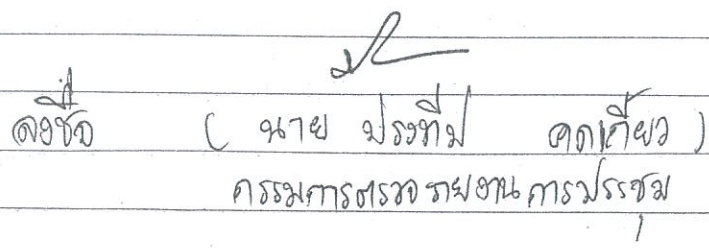 ลงชื่อ ( นาย ประทีป คดเกี้ยว )
กรรมการตรวจรายงานการประชุม